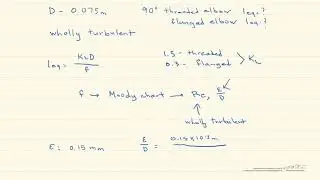 D - 0.075m 90° threaded elbow leq.?
flanged elbow leq.?
wholly turbulent
leq = KLD / f
1.5 - threaded
0.3 - flanged
KL
f → Moody chart → Re, ε/D
wholly turbulent
ε: 0.15 mm ε/D = 0.15 x 10⁻³ m